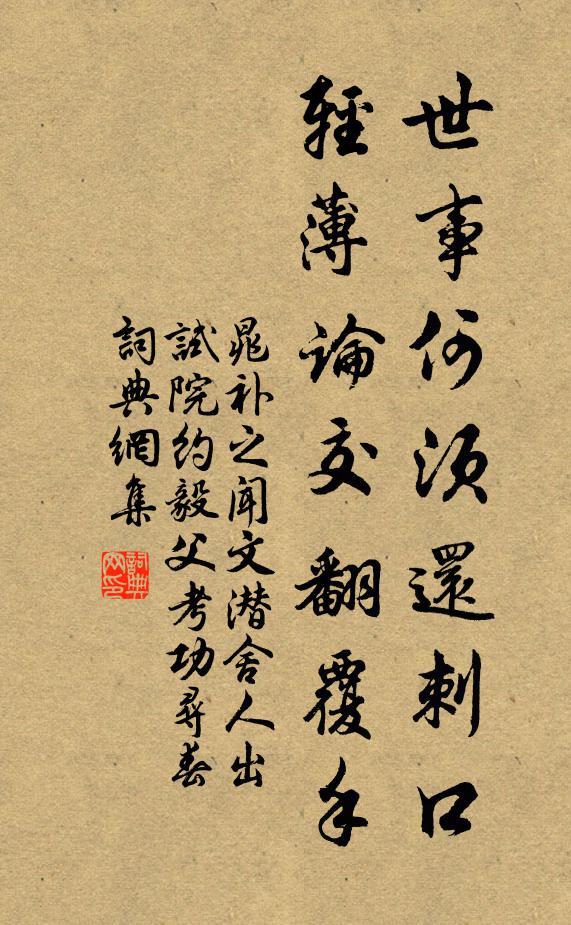 世事何須還刺口
輕薄論交翻覆手
晁补之聞文潜舍人出
試院約毅父考功尋春
詞典網集
詞典網印